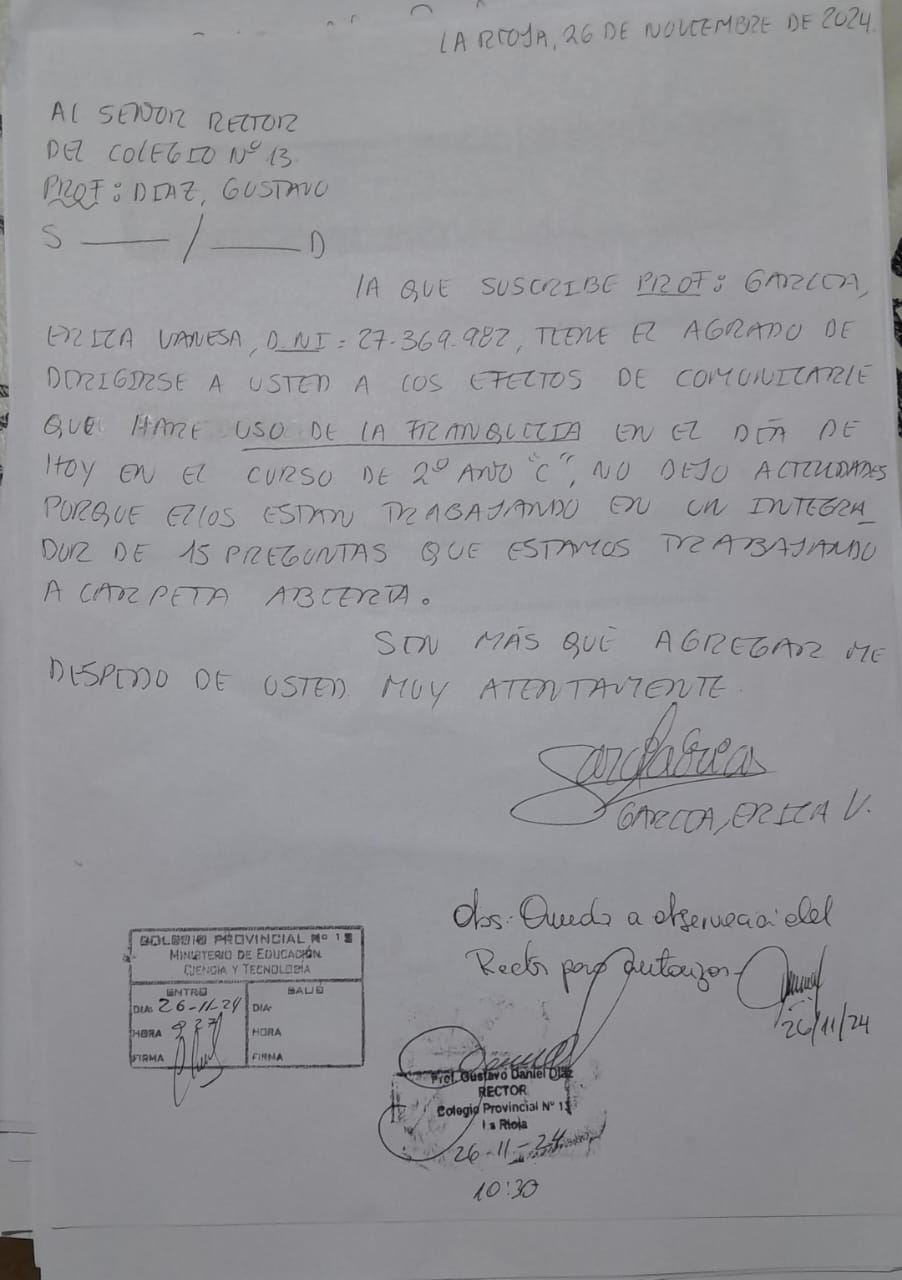 LA RIOJA, 26 DE NOVIEMBRE DE 2024.
AL SEÑOR RECTOR
DEL COLEGIO Nº 13
PROF: DIAZ, GUSTAVO
S ——— / ——— D
LA QUE SUSCRIBE PROF: GARCIA,
ERICA VANESA, D.NI: 27.369.982, TIENE EL AGRADO DE
DIRIGIRSE A USTED A LOS EFECTOS DE COMUNICARLE
QUE HARE USO DE LA FRANQUICIA EN EL DÍA DE
HOY EN EL CURSO DE 2º AÑO "C", NO DEJO ACTIVIDADES
PORQUE ELLOS ESTAN TRABAJANDO EN UN INTEGRA_
DOR DE 15 PREGUNTAS QUE ESTAMOS TRABAJANDO
A CARPETA ABIERTA.
SIN MÁS QUE AGREGAR ME
DESPIDO DE USTED MUY ATENTAMENTE.
GARCIA, ERICA V.
Obs: Queda a observación del
Rector para autorizar-
26/11/24
COLEGIO PROVINCIAL Nº 13
MINISTERIO DE EDUCACIÓN
CIENCIA Y TECNOLOGÍA
ENTRO SALIÓ
DIA: 26-11-24 DIA:
HORA 9 27 HORA
FIRMA FIRMA
Prof. Gustavo Daniel Díaz
RECTOR
Colegio Provincial Nº 13
La Rioja
26-11-24
10:30